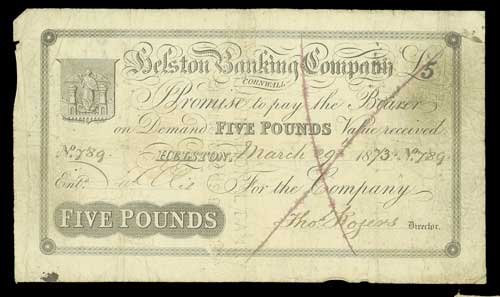 Helston Banking Company £5
CORNWALL
I Promise to pay the Bearer
on Demand FIVE POUNDS Value received
No. 789 HELSTON, March 29th 1873 No. 789
Entd. For the Company
FIVE POUNDS Thos. Rogers Director.